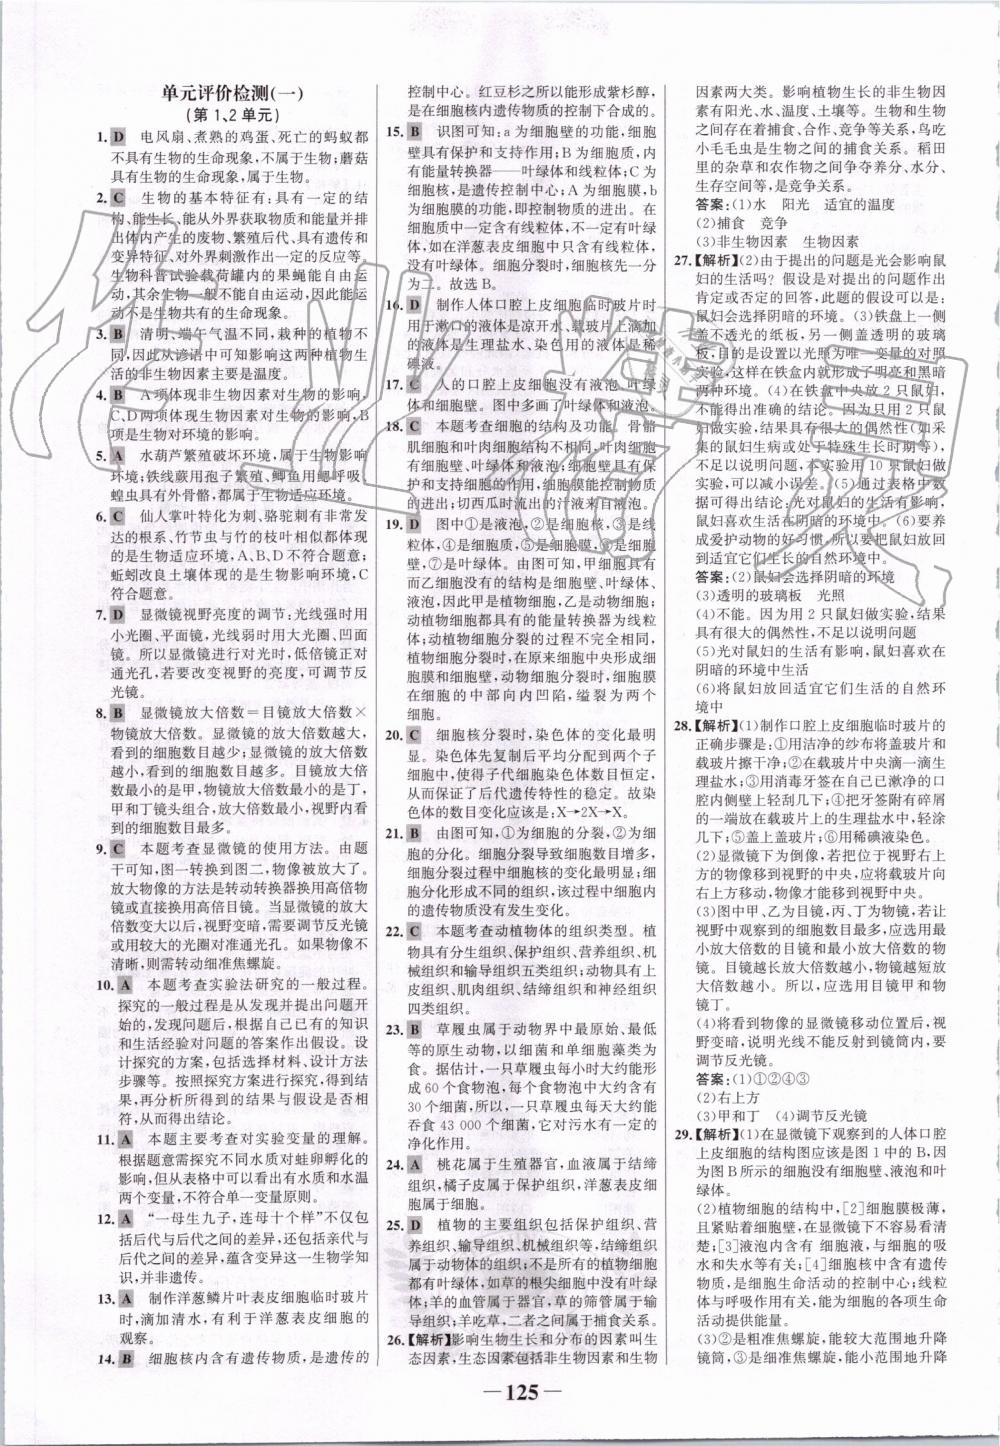 单元评价检测(一)
(第1、2单元)
1. D 电风扇、煮熟的鸡蛋、死亡的蚂蚁都
不具有生物的生命现象,不属于生物;蘑菇
具有生物的生命现象,属于生物。
2. C 生物的基本特征有:具有一定的结
构、能生长、能从外界获取物质和能量并
排出体内产生的废物、繁殖后代、具有遗传和
变异特点、对外界刺激作出一定的反应等。
生物科普试验载荷罐内的果蝇能自由活
动,其余生物一般不能自由活动,因此能运
动不是生物共有的生命现象。
3. B 清明、端午气温不同,栽种的植物不
同,因此从谚语中可知影响这两种植物生
活的非生物因素主要是温度。
4. B A项体现非生物因素对生物的影响,
C、D两项体现生物因素对生物的影响,B
项是生物对环境的影响。
5. A 水葫芦繁殖破坏环境,属于生物影响
环境;铁线蕨用孢子繁殖、鲤鱼用鳃呼吸、
蝗虫具有外骨骼,都属于生物适应环境。
6. C 仙人掌叶特化为刺、骆驼刺有非常发
达的根系、竹节虫与竹的枝叶相似都体现
的是生物适应环境,A、B、D不符合题意;
蚯蚓改良土壤体现的是生物影响环境,C
符合题意。
7. D 显微镜视野亮度的调节:光线强时用
小光圈、平面镜,光线弱时用大光圈、凹面
镜。所以显微镜进行对光时,低倍镜正对
通光孔,若要改变视野的亮度,可调节反
光镜。
8. B 显微镜放大倍数=目镜放大倍数×
物镜放大倍数。显微镜的放大倍数越大,
看到的细胞数目越少;显微镜的放大倍数
越小,看到的细胞数目越多。目镜放大倍
数最小的是甲,物镜放大倍数最小的是丁,
甲和丁镜头组合,放大倍数最小,视野内看
到的细胞数目最多。
9. C 本题考查显微镜的使用方法。由题干
可知,图一转换到图二,物像被放大了。
放大物像的方法是转动转换器换用高倍物
镜或直接换用高倍目镜。当显微镜的放大
倍数变大以后,视野变暗,需要调节反光镜
或用较大的光圈对准通光孔。如果物像不
清晰,则需转动细准焦螺旋。
10. A 本题考查实验法研究的一般过程。
探究的一般过程是从发现并提出问题开
始的,发现问题后,根据自己已有的知识
和生活经验对问题的答案作出假设。设
计探究的方案,包括选择材料、设计方法
步骤等。按照探究方案进行探究,得到结
果,再分析所得的结果与假设是否相
符,从而得出结论。
11. A 本题主要考查对实验变量的理解。
根据题意需探究不同水质对蛙卵孵化的影
响,但从表格中可以看出有水质和水温
两个变量,不符合单一变量原则。
12. A “一母生九子,连母十个样”不仅包
括后代与后代之间的差异,还包括亲代与
后代之间的差异,蕴含变异这一生物学知
识,并非遗传。
13. A 制作洋葱鳞片叶表皮细胞临时玻片
时,滴加清水,有利于洋葱表皮细胞的
观察。
14. B 细胞核内含有遗传物质,是遗传的
控制中心。红豆杉之所以能形成紫杉醇,
是在细胞核内遗传物质的控制下合成的。
15. B 识图可知:a为细胞壁的功能,细胞
壁具有保护和支持作用;B为细胞质,内
有能量转换器——叶绿体和线粒体;C
为细胞核,是遗传控制中心;A为细胞膜,b
为细胞膜的功能,即控制物质的进出。在
细胞质中一定含有线粒体,不一定有叶绿
体,如在洋葱表皮细胞中就只有线粒体,
没有叶绿体。细胞分裂时,细胞核先一分
为二。故选B。
16. D 制作人体口腔上皮细胞临时玻片时
用于漱口的液体是凉开水、载玻片上滴加
的液体是生理盐水、染色用的液体是稀
碘液。
17. C 人的口腔上皮细胞没有液泡、叶绿
体和细胞壁。图中多画了叶绿体和液泡。
18. C 本题考查细胞的结构及功能。骨骼
肌细胞和叶肉细胞结构不相同,叶肉细胞
有细胞壁、叶绿体和液泡;细胞壁具有保
护和支持作用,细胞膜能控制细胞物质
的进出;切西瓜时流出的汁液来自液泡。
19. D 图中①是液泡,②是细胞核,③是线
粒体,④是细胞质,⑤是细胞膜,⑥是细胞
壁,⑦是叶绿体。由图可知,甲细胞具有
而乙细胞没有的结构是细胞壁、叶绿体、
液泡,因此甲是植物细胞,乙是动物细胞;
动植物细胞都具有的能量转换器是线粒
体;动植物细胞分裂的过程不完全相同,
植物细胞分裂时,在原来细胞中央形成细
胞膜和细胞壁,动物细胞分裂时,细胞膜
在细胞的中部向内凹陷,缢裂为两个
细胞。
20. C 细胞核分裂时,染色体的变化最明
显。染色体先复制后平均分配到两个子
细胞中,使得子代细胞染色体数目恒定,
从而保证了后代遗传特性的稳定。故染
色体的数目变化应该是:X→2X→X。
21. B 由图可知,①为细胞的分裂,②为细
胞的分化。细胞分裂导致细胞数目增多,
细胞分裂过程中细胞核的变化最明显;
细胞分化形成不同的组织,该过程中细胞内
的遗传物质没有发生变化。
22. C 本题考查动植物体的组织类型。植
物具有分生组织、保护组织、营养组织、机
械组织和输导组织五类组织;动物具有上
皮组织、肌肉组织、结缔组织和神经组织
四类组织。
23. B 草履虫属于动物界中最原始、最低
等的原生动物,以细菌和单细胞藻类为
食。据估计,一只草履虫每小时大约能形
成60个食物泡,每个食物泡中大约含有
30个细菌,所以,一只草履虫每天大约能
吞食43 000个细菌,它对污水有一定的
净化作用。
24. A 桃花属于生殖器官,血液属于结缔
组织,橘子皮属于保护组织,洋葱表皮细
胞属于细胞。
25. D 植物的主要组织包括保护组织、营
养组织、输导组织、机械组织等,结缔组织
属于动物体的基本组织。不是所有的细胞
都有叶绿体,如草的根尖细胞中没有叶绿
体;羊的血管属于器官,草的筛管属于输
导组织。羊吃草,羊与草之间属于捕食关系。
26.【解析】影响生物生长和分布的因素叫生
态因素,生态因素包括非生物因素和生物
因素两大类。影响植物生长的非生物因
素有阳光、水、温度、土壤等。生物和生物
之间存在着捕食、合作、竞争等关系。鸟吃
小毛毛虫是生物之间的捕食关系。稻田
里的杂草和农作物之间争夺养分、水分、
生存空间等,是竞争关系。
答案:(1)水 阳光 适宜的温度
(2)捕食 竞争
(3)非生物因素 生物因素
27.【解析】(2)由于提出的问题是光会影响鼠
妇的生活吗?假设是对提出的问题作出
肯定或否定的回答,此题的假设可以是:
鼠妇会选择阴暗的环境。(3)铁盘上一侧
盖不透光的纸板,另一侧盖透明的玻璃
板,目的是设计以光照为唯一变量的对照
实验,这样在铁盒内就形成了明亮和黑暗
两种环境。(4)在铁盘中央放2只鼠妇,
不能得出准确的结论。因为用2只鼠妇
做实验,结果具有很大的偶然性(如采
集的鼠妇生病或处于特殊生长时期等),
不足以说明问题,本实验用10只鼠妇做
实验,可以减小误差。(5)通过分析实验
数据,可得出结论:光对鼠妇的生活有影响,
鼠妇喜欢在阴暗的环境中生活。(6)要养
成爱护动物的好习惯,所以实验后要将鼠
妇放回适宜它们生长的自然环境中。
答案:(2)鼠妇会选择阴暗的环境
(3)透明的玻璃板 光照
(4)不能。因为用2只鼠妇做实验,结果具
有很大的偶然性,不足以说明问题
(5)光对鼠妇的生活有影响,鼠妇喜欢在
阴暗的环境中生活
(6)将鼠妇放回适宜它们生活的自然环
境中
28.【解析】(1)制作口腔上皮细胞临时玻片的
正确步骤是:①用洁净的纱布将盖玻片和
载玻片擦干净;②在载玻片中央滴一滴生
理盐水;④用消毒牙签在自己已漱净的口
腔内侧壁上轻刮几下;③把牙签附有碎屑
的一端放在载玻片上的生理盐水中,轻涂
几下;⑤盖上盖玻片;⑥用稀碘液染色。
(2)显微镜下为倒像,若把位于视野右上方
的物像移到视野的中央,应将玻片向右上
方移动,物像才能移到视野中央。
(3)图中甲、乙为目镜,丙、丁为物镜,若让
视野中观察到的细胞数目最多,应选用最
小放大倍数的目镜和最小放大倍数的物
镜。目镜越长放大倍数越小,物镜越短放
大倍数越小。所以,应选用目镜甲和物
镜丁。
(4)将看到物像的显微镜移动位置后,视
野变暗,说明光线不能反射到镜筒内,要
调节反光镜。
答案:(1)①②④③
(2)右上方
(3)甲和丁 (4)调节反光镜
29.【解析】(1)在显微镜下观察到的人体口腔
上皮细胞的结构图应该是图1中的B,因
为图B所示的细胞没有细胞壁、液泡和叶
绿体。
(2)植物细胞的结构中,[2]细胞膜极薄,
且紧贴着细胞壁,在显微镜下不容易看
清楚;[3]液泡内含有 细胞液,与细胞的吸
水和失水等有关;[4]细胞核中含有遗传物
质,是细胞生命活动的控制中心;线粒
体与呼吸作用有关,为细胞的各项生命
活动提供能量。
(3)②是粗准焦螺旋,能较大范围地升降
镜筒,③是细准焦螺旋,能小范围地升降
— 125 —